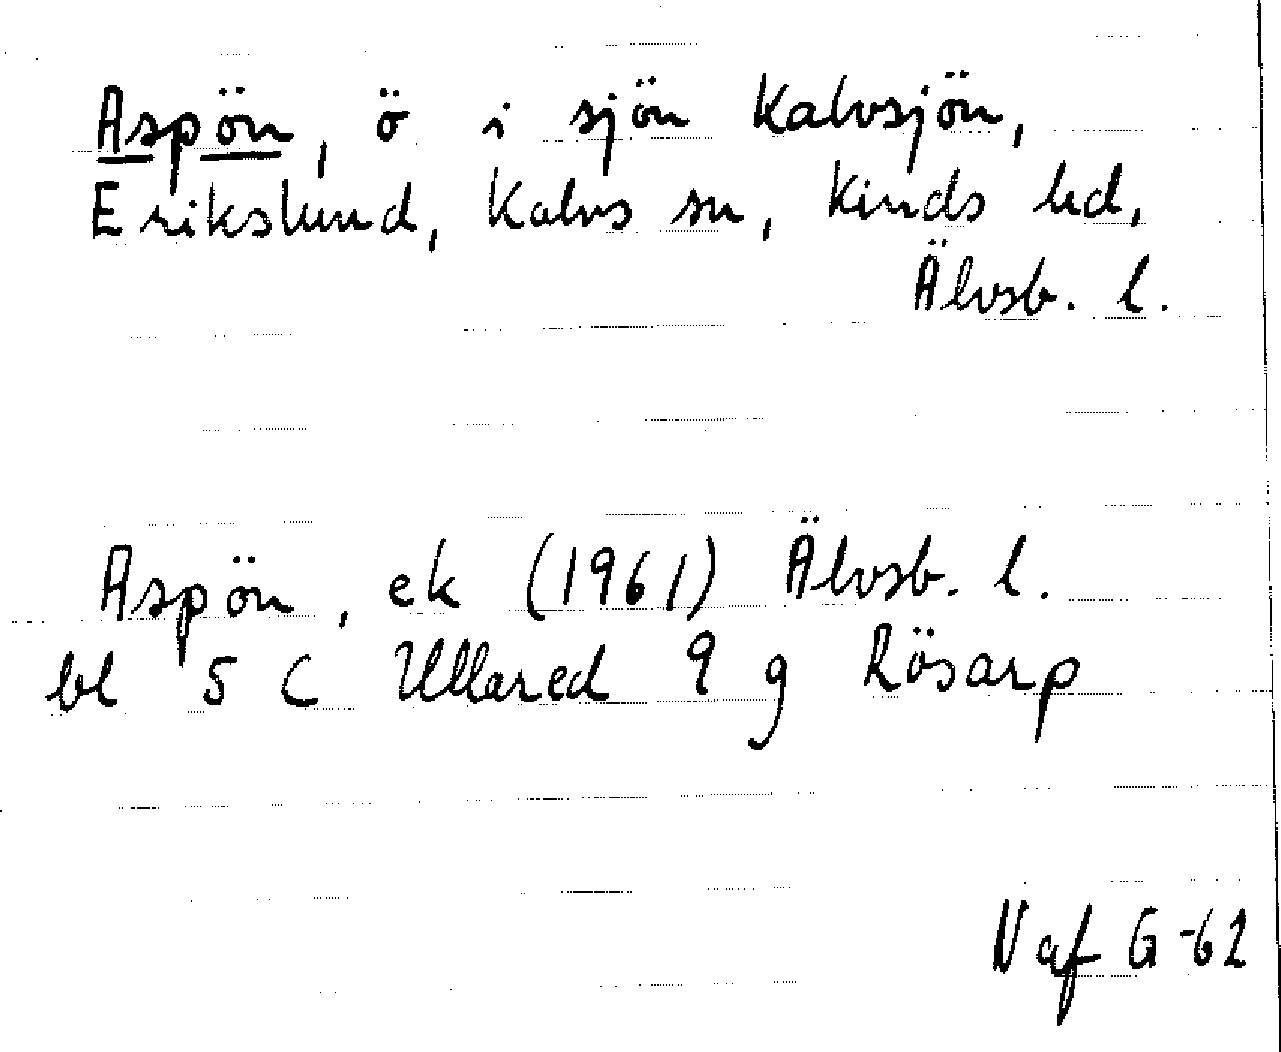 Aspön, ö i sjön Kalvsjön,
Erikslund, Kalvs sn, Kinds hd,
Älvsb. l.
Aspön, ek (1961) Älvsb. l.
bl 5 C Ullared 9 g Rösarp
V af G -62